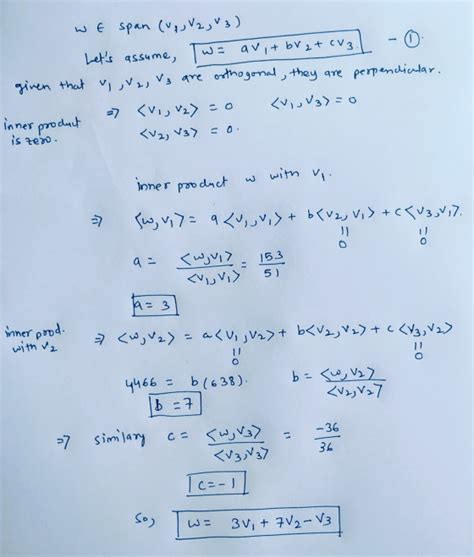 w ∈ span (v₁, v₂, v₃)
Let's assume, w = av₁ + bv₂ + cv₃ - ①.
given that v₁, v₂, v₃ are orthogonal, they are perpendicular.
inner product is zero. ⇒ <v₁, v₂> = 0 <v₁, v₃> = 0
<v₂, v₃> = 0.
inner product w with v₁.
⇒ <w, v₁> = a<v₁, v₁> + b<v₂, v₁> + c<v₃, v₁>.
|| ||
0 0
a = <w, v₁> / <v₁, v₁> = 153 / 51
a = 3
inner prod. with v₂ ⇒ <w, v₂> = a<v₁, v₂> + b<v₂, v₂> + c<v₃, v₂>
|| ||
0 0
4466 = b(638). b = <w, v₂> / <v₂, v₂>
b = 7
⇒ similary c = <w, v₃> / <v₃, v₃> = -36 / 36
c = -1
So, w = 3v₁ + 7v₂ - v₃